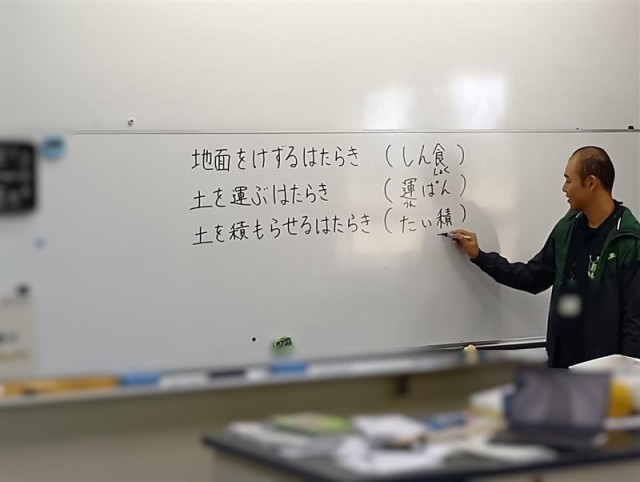 地面をけずるはたらき (しん食)
しょく
土を運ぶはたらき (運ぱん)
うん
土を積もらせるはたらき (たい積)